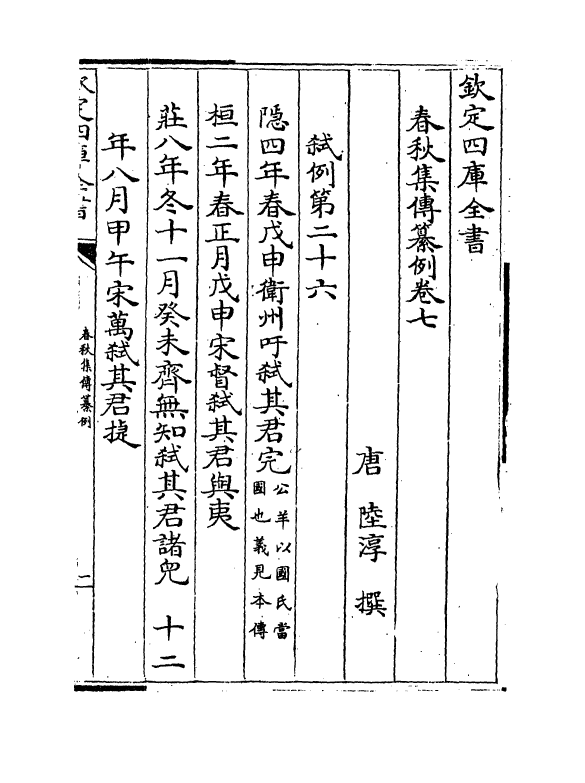 欽定四庫全書
春秋集傳纂例卷七
唐　陸淳　撰
弑例第二十六
隠四年春戊申衛州吁弑其君完公羊以國氏當
國也義見本傳
桓二年春正月戊申宋督弑其君與夷
莊八年冬十一月癸未齊無知弑其君諸兒　十二
年八月甲午宋萬弑其君捷
欽定四庫全書
春秋集傳纂例